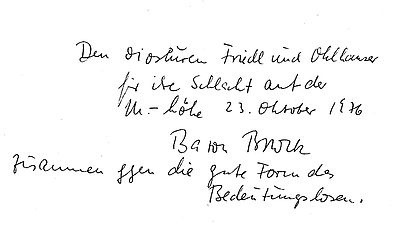 Den Dioskuren Friedl und Ohlhauser
für ihre Schlacht auf der
M.-höhe 23. Oktober 1976
Bazon Brock
zusammen gegen die gute Form des
Bedeutungslosen.